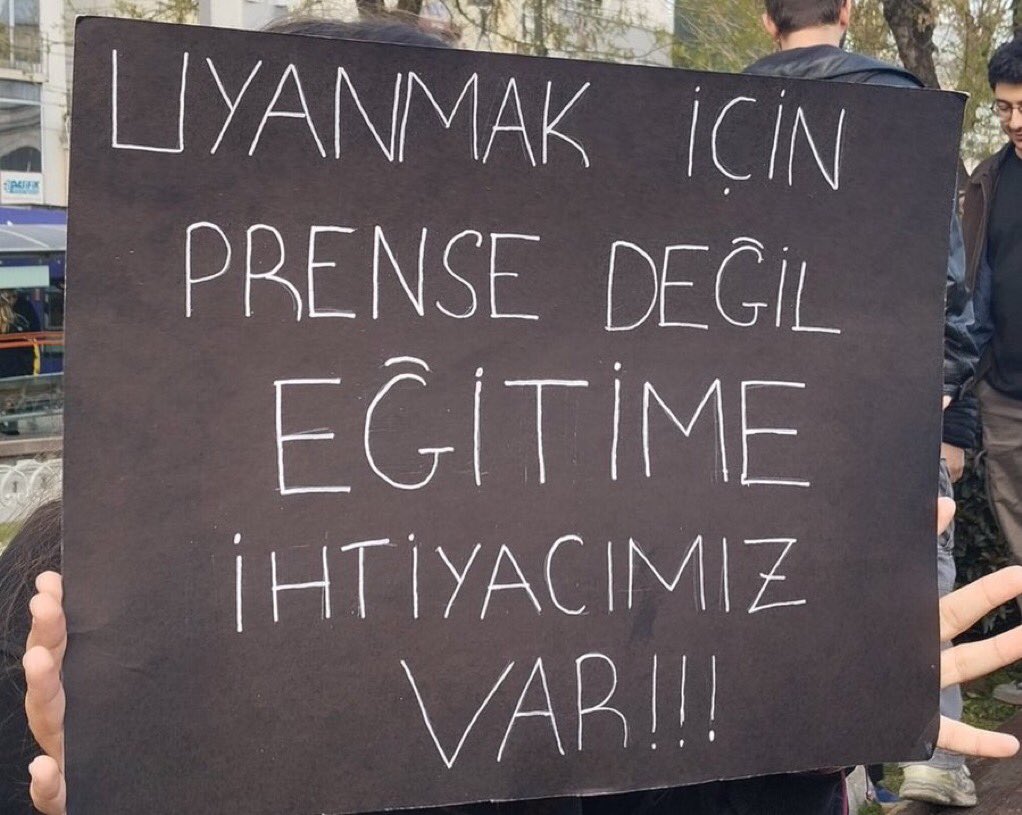 UYANMAK İÇİN
PRENSE DEĞİL
EĞİTİME
İHTİYACIMIZ
VAR!!!